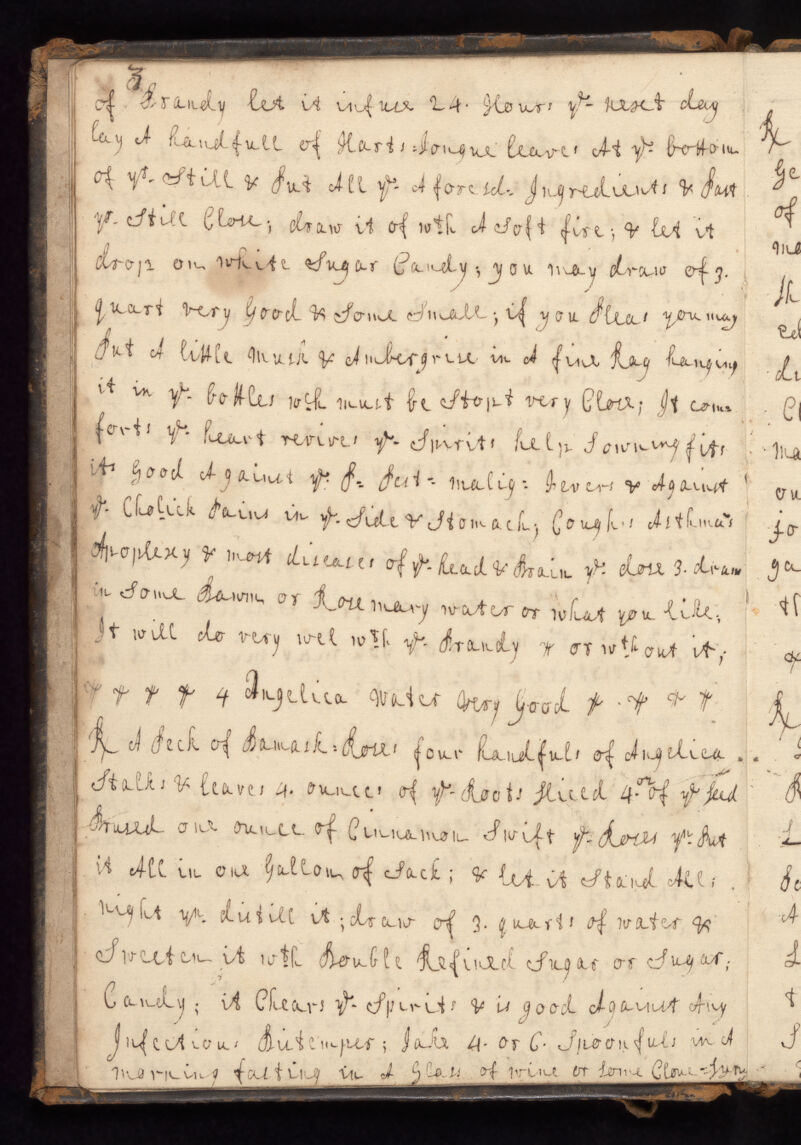 3
of Brandy let it infuse 24. Hours yᵉ next day
lay A handfull of Harts=Tongue leaves At yᵉ bottom
of yᵉ Still & Put All yᵉ Aforesd= Ingredients & Past
yᵉ Still Close; draw it of wth A Soft fire; & let it
drop on white Sugar Candy; you may draw of 3.
quart very Good & Some Small; if you Pleas you may
Put A little Musk & Ambergrise in A fine Rag hanging
it in yᵉ bottles wch must be Stopt very Close; It com=
forts yᵉ heart revives yᵉ Spirits help Sowning fits
its Good Against yᵉ P= Pest= malig= Fevers & Against
yᵉ Cholick Pains in yᵉ Side & Stomach; Coughs Asthma's
Apoplexy & most diseases of yᵉ head & Brain yᵉ dose 3. dram
in Some Bawm or Rosemary water or what you like;
It will do very wel wth yᵉ Brandy or wthout it;
4 Angelica Water Very Good
℞ A Peck of Damask=Roses four handfuls of Angelica
Stalks & leaves 4. ounces of yᵉ Roots Sliced 4.oz of yᵉ Seed
Brused one ounce of Cinnamon Swift yᵉ Roses yⁿ Put
it All in one Gallon of Sack; & let it Stand All
night yⁿ distill it; draw of 3. quarts of water &
Sweeten it wth Double Refined Sugar or Sugar;
Candy; it Chears yᵉ Spirits & is good Against Any
Infectious Distemper; Take 4. or 6. Spoonfuls in A
morning fasting in A Glass of wine or Some Clove=
℞
Ge
of
ma